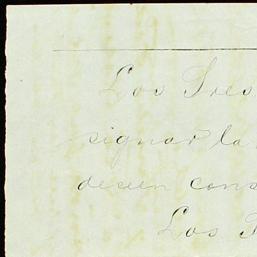 Los Tres
signar la
deseen cons
Los